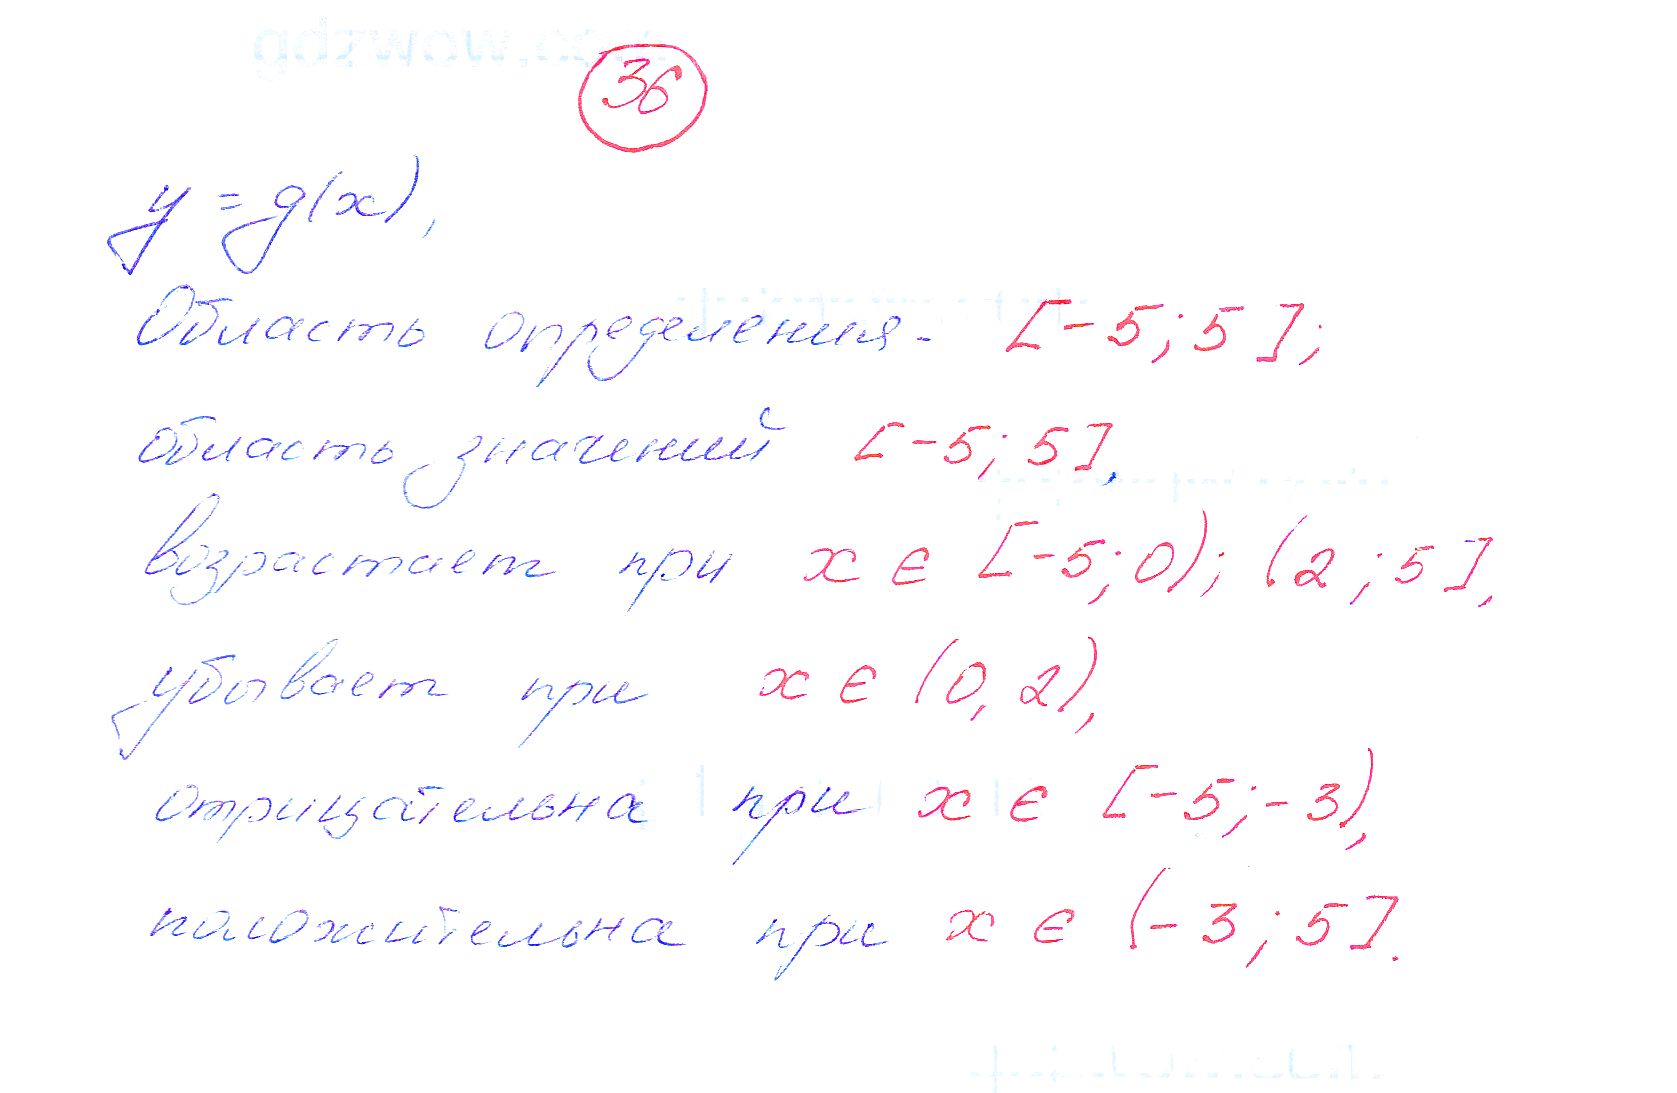 36
y = g(x),
Область определения - [-5; 5];
область значений [-5; 5],
возрастает при x ∈ [-5; 0); (2; 5],
убывает при x ∈ (0, 2),
отрицательна при x ∈ [-5; -3),
положительна при x ∈ (-3; 5].